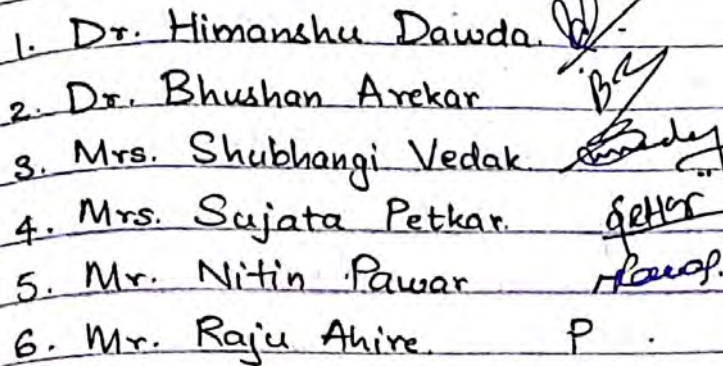 1. Dr. Himanshu Dawda.
2. Dr. Bhushan Arekar
3. Mrs. Shubhangi Vedak.
4. Mrs. Sujata Petkar.
5. Mr. Nitin Pawar
6. Mr. Raju Ahire. P .